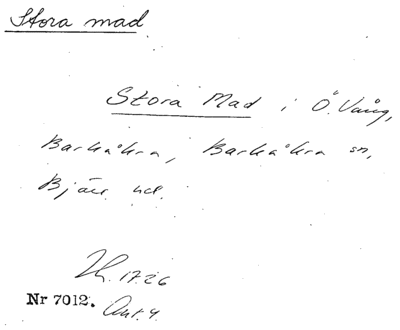 Stora mad
Stora Mad i Ö. Vång,
Barkåkra, Barkåkra sn,
Bjäre hd.
17.26
Nr 7012. Ant. 4.